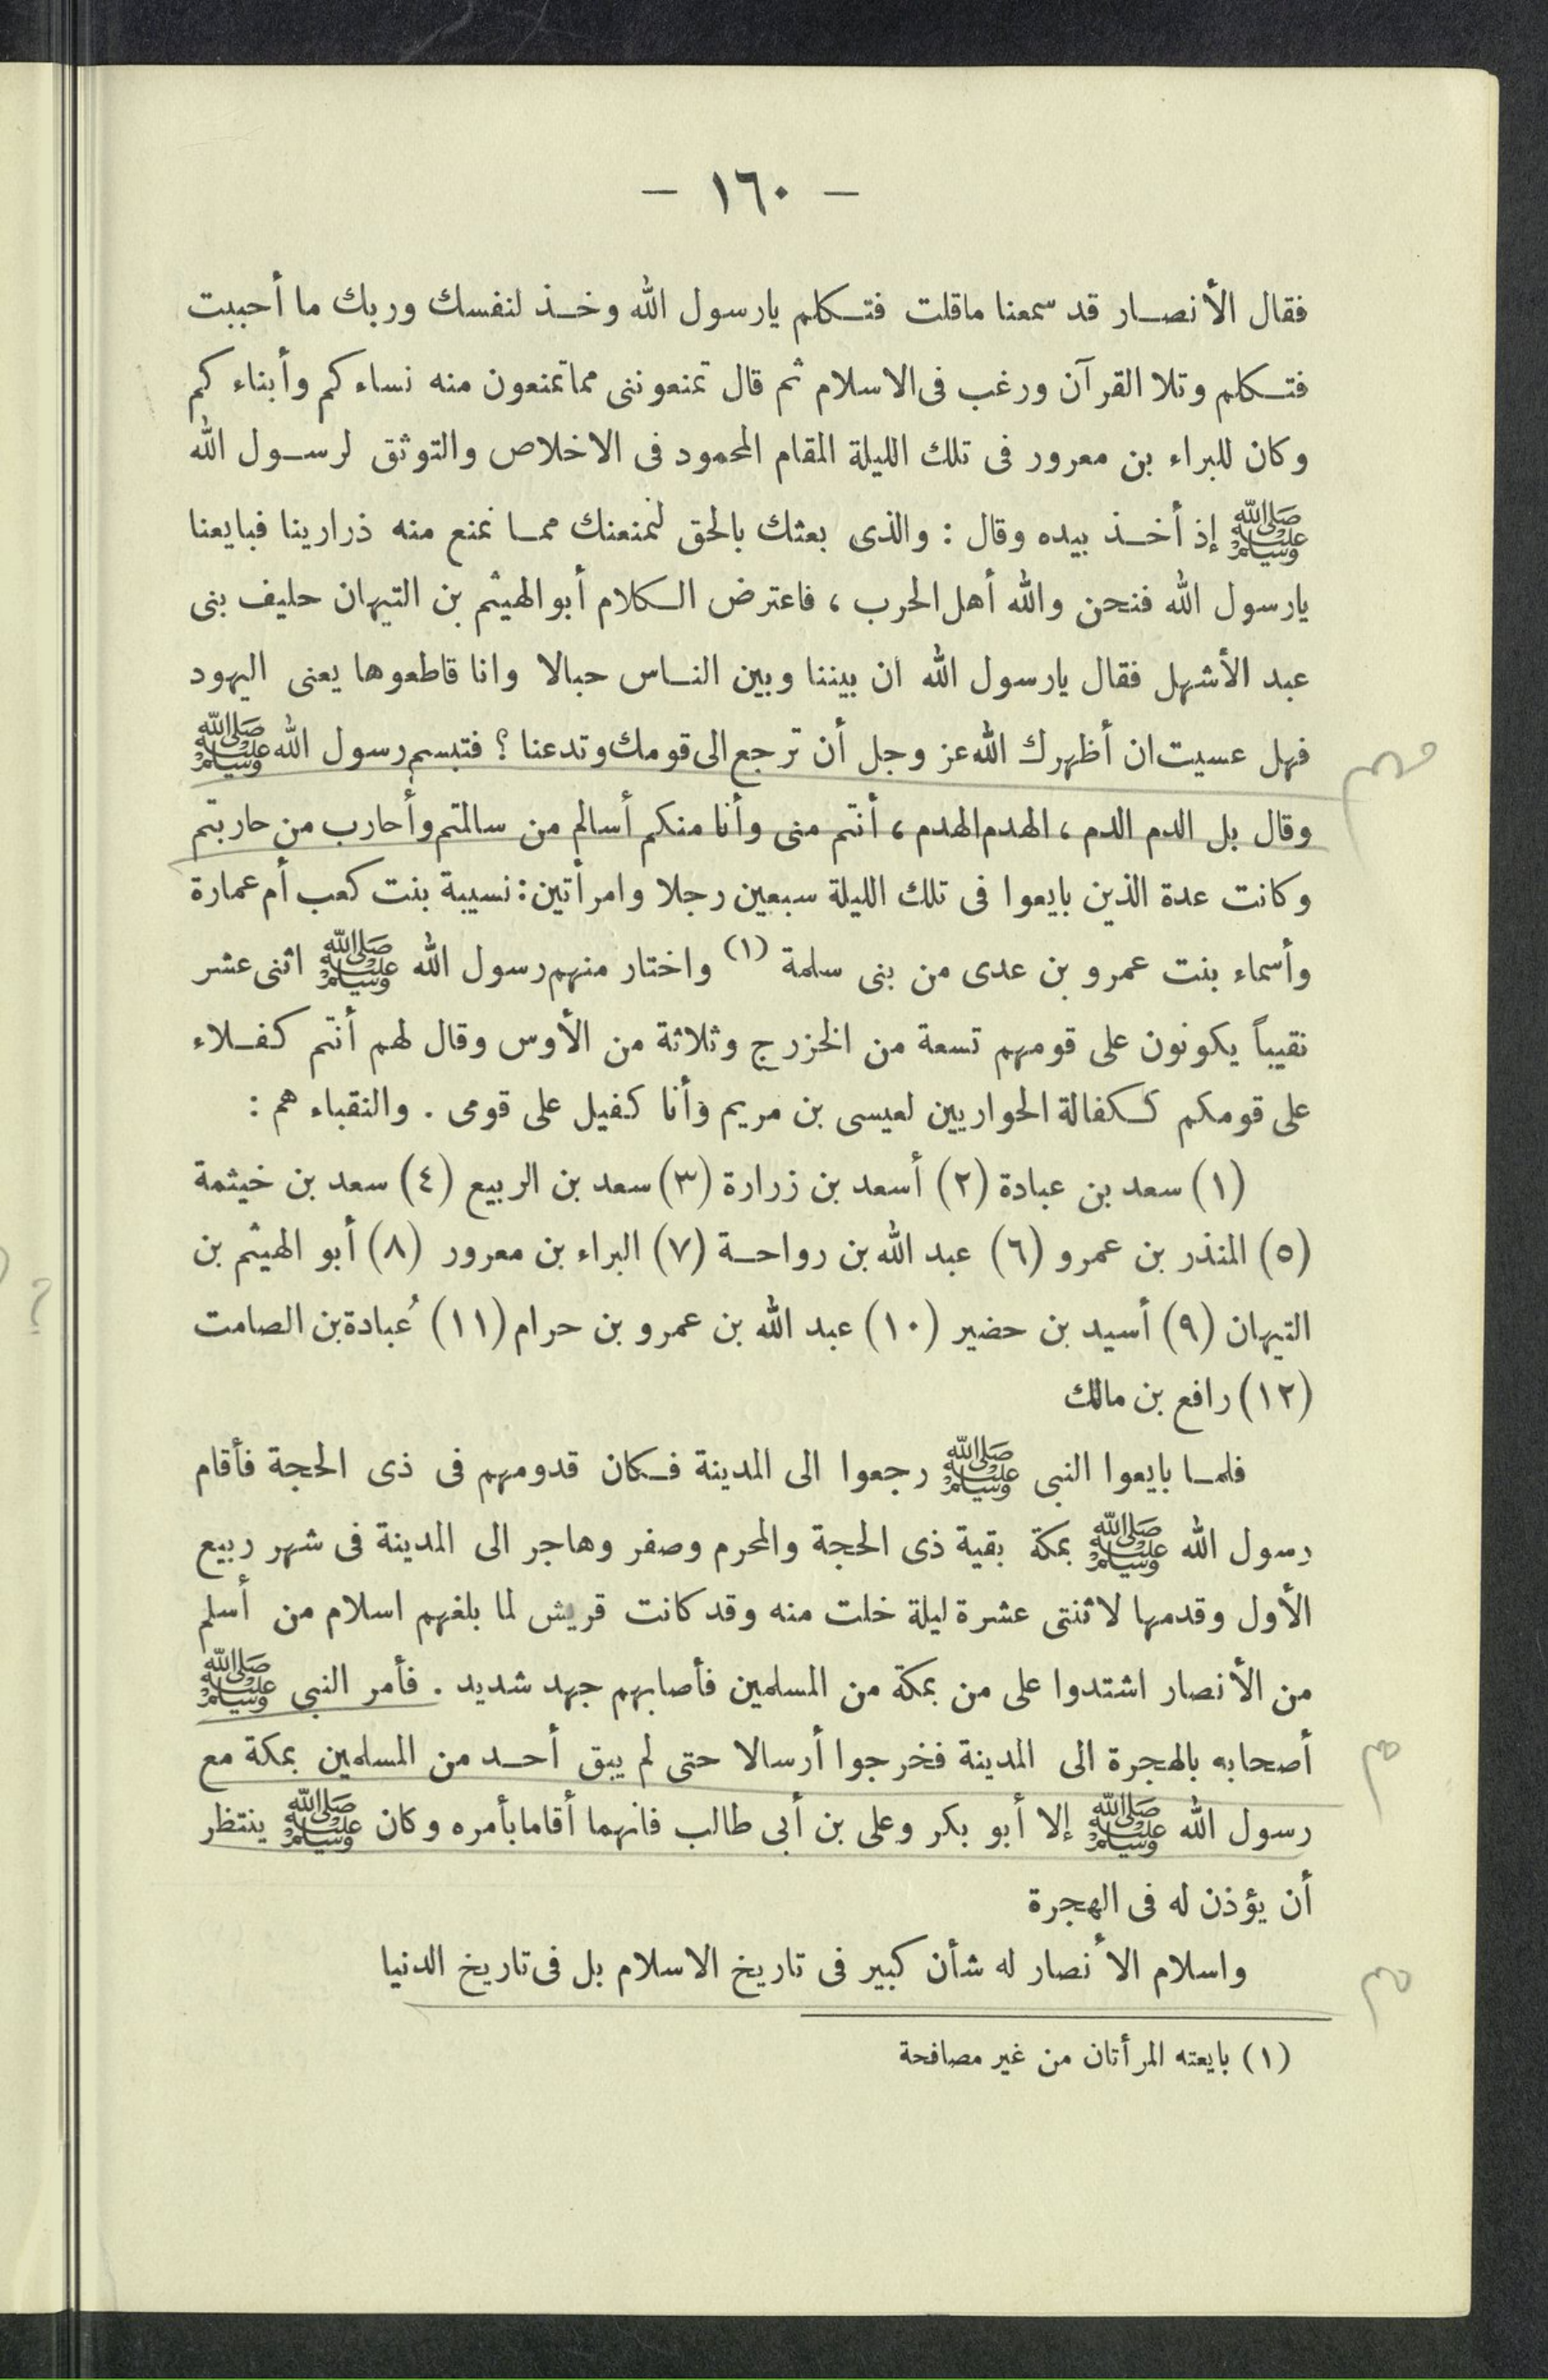 — ١٦٠ —
فقال الأنصار قد سمعنا ماقلت فتكلم يارسول الله وخذ لنفسك وربك ما أحببت
فتكلم وتلا القرآن ورغب فى الاسلام ثم قال تمنعوننى مما تمنعون منه نساءكم وأبناءكم
وكان للبراء بن معرور فى تلك الليلة المقام المحمود فى الاخلاص والتوثق لرسول الله
ﷺ إذ أخذ بيده وقال : والذى بعثك بالحق لنمنعنك مما نمنع منه ذرارينا فبايعنا
يارسول الله فنحن والله أهل الحرب ، فاعترض الكلام أبو الهيثم بن التيهان حليف بنى
عبد الأشهل فقال يارسول الله ان بيننا وبين الناس حبالا وانا قاطعوها يعنى اليهود
فهل عسيت ان أظهرك الله عز وجل أن ترجع الى قومك وتدعنا ؟ فتبسم رسول الله ﷺ
وقال بل الدم الدم ، الهدم الهدم ، أنتم منى وأنا منكم أسالم من سالمتم وأحارب من حاربتم
وكانت عدة الذين بايعوا فى تلك الليلة سبعين رجلا وامرأتين : نسيبة بنت كعب أم عمارة
وأسماء بنت عمرو بن عدى من بنى سلمة (١) واختار منهم رسول الله ﷺ اثنى عشر
نقيباً يكونون على قومهم تسعة من الخزرج وثلاثة من الأوس وقال لهم أنتم كفلاء
على قومكم ككفالة الحواريين لعيسى بن مريم وأنا كفيل على قومى . والنقباء هم :
(١) سعد بن عبادة (٢) أسعد بن زرارة (٣) سعد بن الربيع (٤) سعد بن خيثمة
(٥) المنذر بن عمرو (٦) عبد الله بن رواحة (٧) البراء بن معرور (٨) أبو الهيثم بن
التيهان (٩) أسيد بن حضير (١٠) عبد الله بن عمرو بن حرام (١١) عُبادة بن الصامت
(١٢) رافع بن مالك
فلما بايعوا النبى ﷺ رجعوا الى المدينة فكان قدومهم فى ذى الحجة فأقام
رسول الله ﷺ بمكة بقية ذى الحجة والمحرم وصفر وهاجر الى المدينة فى شهر ربيع
الأول وقدمها لاثنتى عشرة ليلة خلت منه وقد كانت قريش لما بلغهم اسلام من أسلم
من الأنصار اشتدوا على من بمكة من المسلمين فأصابهم جهد شديد . فأمر النبى ﷺ
أصحابه بالهجرة الى المدينة فخرجوا أرسالا حتى لم يبق أحد من المسلمين بمكة مع
رسول الله ﷺ إلا أبو بكر وعلى بن أبى طالب فانهما أقاما بأمره وكان ﷺ ينتظر
أن يؤذن له فى الهجرة
واسلام الأنصار له شأن كبير فى تاريخ الاسلام بل فى تاريخ الدنيا
(١) بايعته المرأتان من غير مصافحة